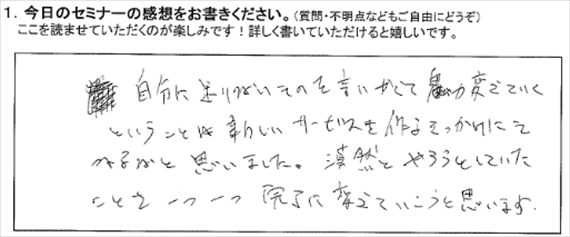 1. 今日のセミナーの感想をお書きください。(質問・不明点などもご自由にどうぞ)
ここを読ませていただくのが楽しみです！詳しく書いていただけると嬉しいです。
自分に足りないものを言いかえて 変えていく
ということは新しいサービスを作るきっかけにも
なるなと思いました。漠然とやろうとしていた
ことを一つ一つ完了に変えていこうと思います。